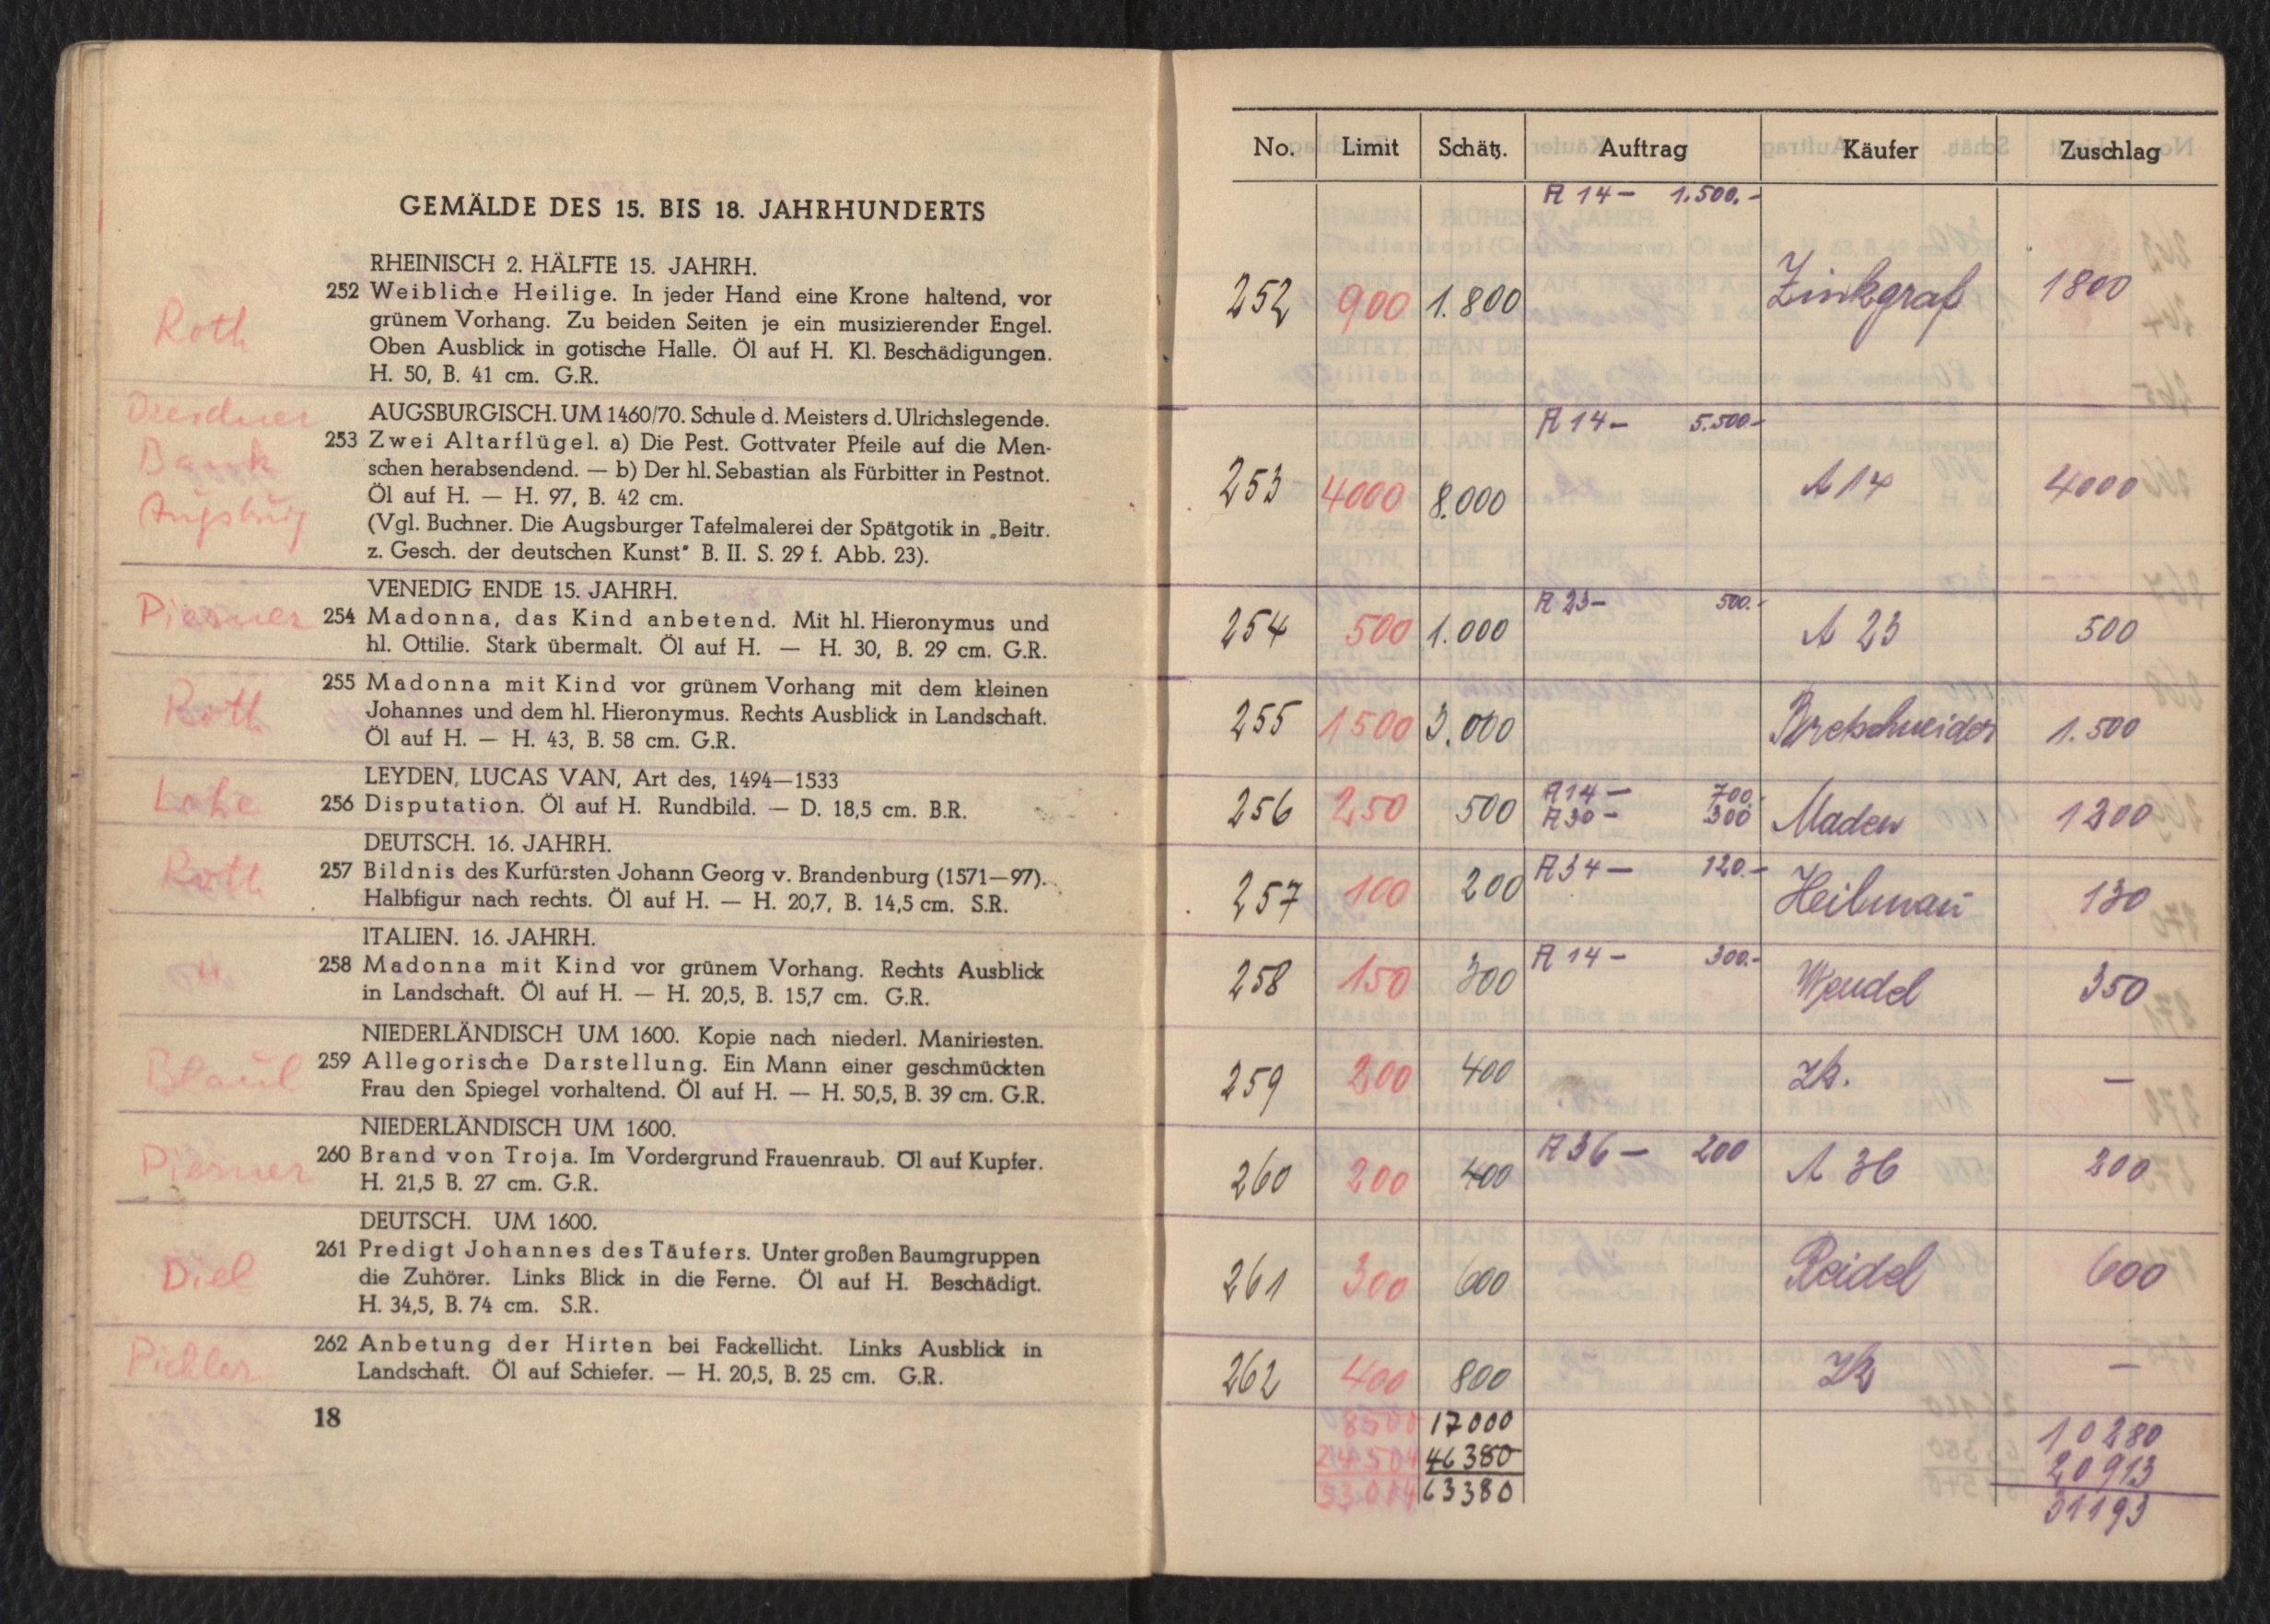 GEMÄLDE DES 15. BIS 18. JAHRHUNDERTS
RHEINISCH 2. HÄLFTE 15. JAHRH.
252 Weibliche Heilige. In jeder Hand eine Krone haltend, vor
grünem Vorhang. Zu beiden Seiten je ein musizierender Engel.
Roth
Oben Ausblick in gotische Halle. Öl auf H. Kl. Beschädigungen.
H. 50, B. 41 cm. G.R.
Dresdner
Bank
Augsburg
AUGSBURGISCH. UM 1460/70. Schule d. Meisters d. Ulrichslegende.
253 Zwei Altarflügel. a) Die Pest. Gottvater Pfeile auf die Men-
schen herabsendend. — b) Der hl. Sebastian als Fürbitter in Pestnot.
Öl auf H. — H. 97, B. 42 cm.
(Vgl. Buchner. Die Augsburger Tafelmalerei der Spätgotik in „Beitr.
z. Gesch. der deutschen Kunst" B. II. S. 29 f. Abb. 23).
VENEDIG ENDE 15. JAHRH.
254 Madonna, das Kind anbetend. Mit hl. Hieronymus und
hl. Ottilie. Stark übermalt. Öl auf H. — H. 30, B. 29 cm. G.R.
255 Madonna mit Kind vor grünem Vorhang mit dem kleinen
Roth
Johannes und dem hl. Hieronymus. Rechts Ausblick in Landschaft.
Öl auf H. — H. 43, B. 58 cm. G.R.
LEYDEN, LUCAS VAN, Art des, 1494—1533
256 Disputation. Öl auf H. Rundbild. — D. 18,5 cm. B.R.
DEUTSCH. 16. JAHRH.
Roth
257 Bildnis des Kurfürsten Johann Georg v. Brandenburg (1571—97).
Halbfigur nach rechts. Öl auf H. — H. 20,7, B. 14,5 cm. S.R.
ITALIEN. 16. JAHRH.
258 Madonna mit Kind vor grünem Vorhang. Rechts Ausblick
in Landschaft. Öl auf H. — H. 20,5, B. 15,7 cm. G.R.
NIEDERLÄNDISCH UM 1600. Kopie nach niederl. Maniriesten.
Blaul
259 Allegorische Darstellung. Ein Mann einer geschmückten
Frau den Spiegel vorhaltend. Öl auf H. — H. 50,5, B. 39 cm. G.R.
NIEDERLÄNDISCH UM 1600.
260 Brand von Troja. Im Vordergrund Frauenraub. Öl auf Kupfer.
H. 21,5 B. 27 cm. G.R.
DEUTSCH. UM 1600.
261 Predigt Johannes des Täufers. Unter großen Baumgruppen
Diel
die Zuhörer. Links Blick in die Ferne. Öl auf H. Beschädigt.
H. 34,5, B. 74 cm. S.R.
Pichler
262 Anbetung der Hirten bei Fackellicht. Links Ausblick in
Landschaft. Öl auf Schiefer. — H. 20,5, B. 25 cm. G.R.
18
No. Limit Schätz. Auftrag Käufer Zuschlag
A 14 — 1.500.-
252 900 1.800 Zinkgraf 1800
A 14 — 5.500-
253 4000 8.000 A 14 4000
A 23— 500.-
254 500 1.000 A 23 500
255 1500 3.000 Bretschneider 1.500
A 14 — 700.-
256 250 500 A 30 - 300 Maden 1200
A 34 — 120.-
257 100 200 Heilman̄ 130
A 14 — 300.-
258 150 300 Wendel 350
259 200 400 Zk. —
A 36 — 200
260 200 400 A 36 200
261 300 600 Reidel 600
262 400 800 Zk —
8500 17000 10280
24504 46380 20913
33004 63380 31193